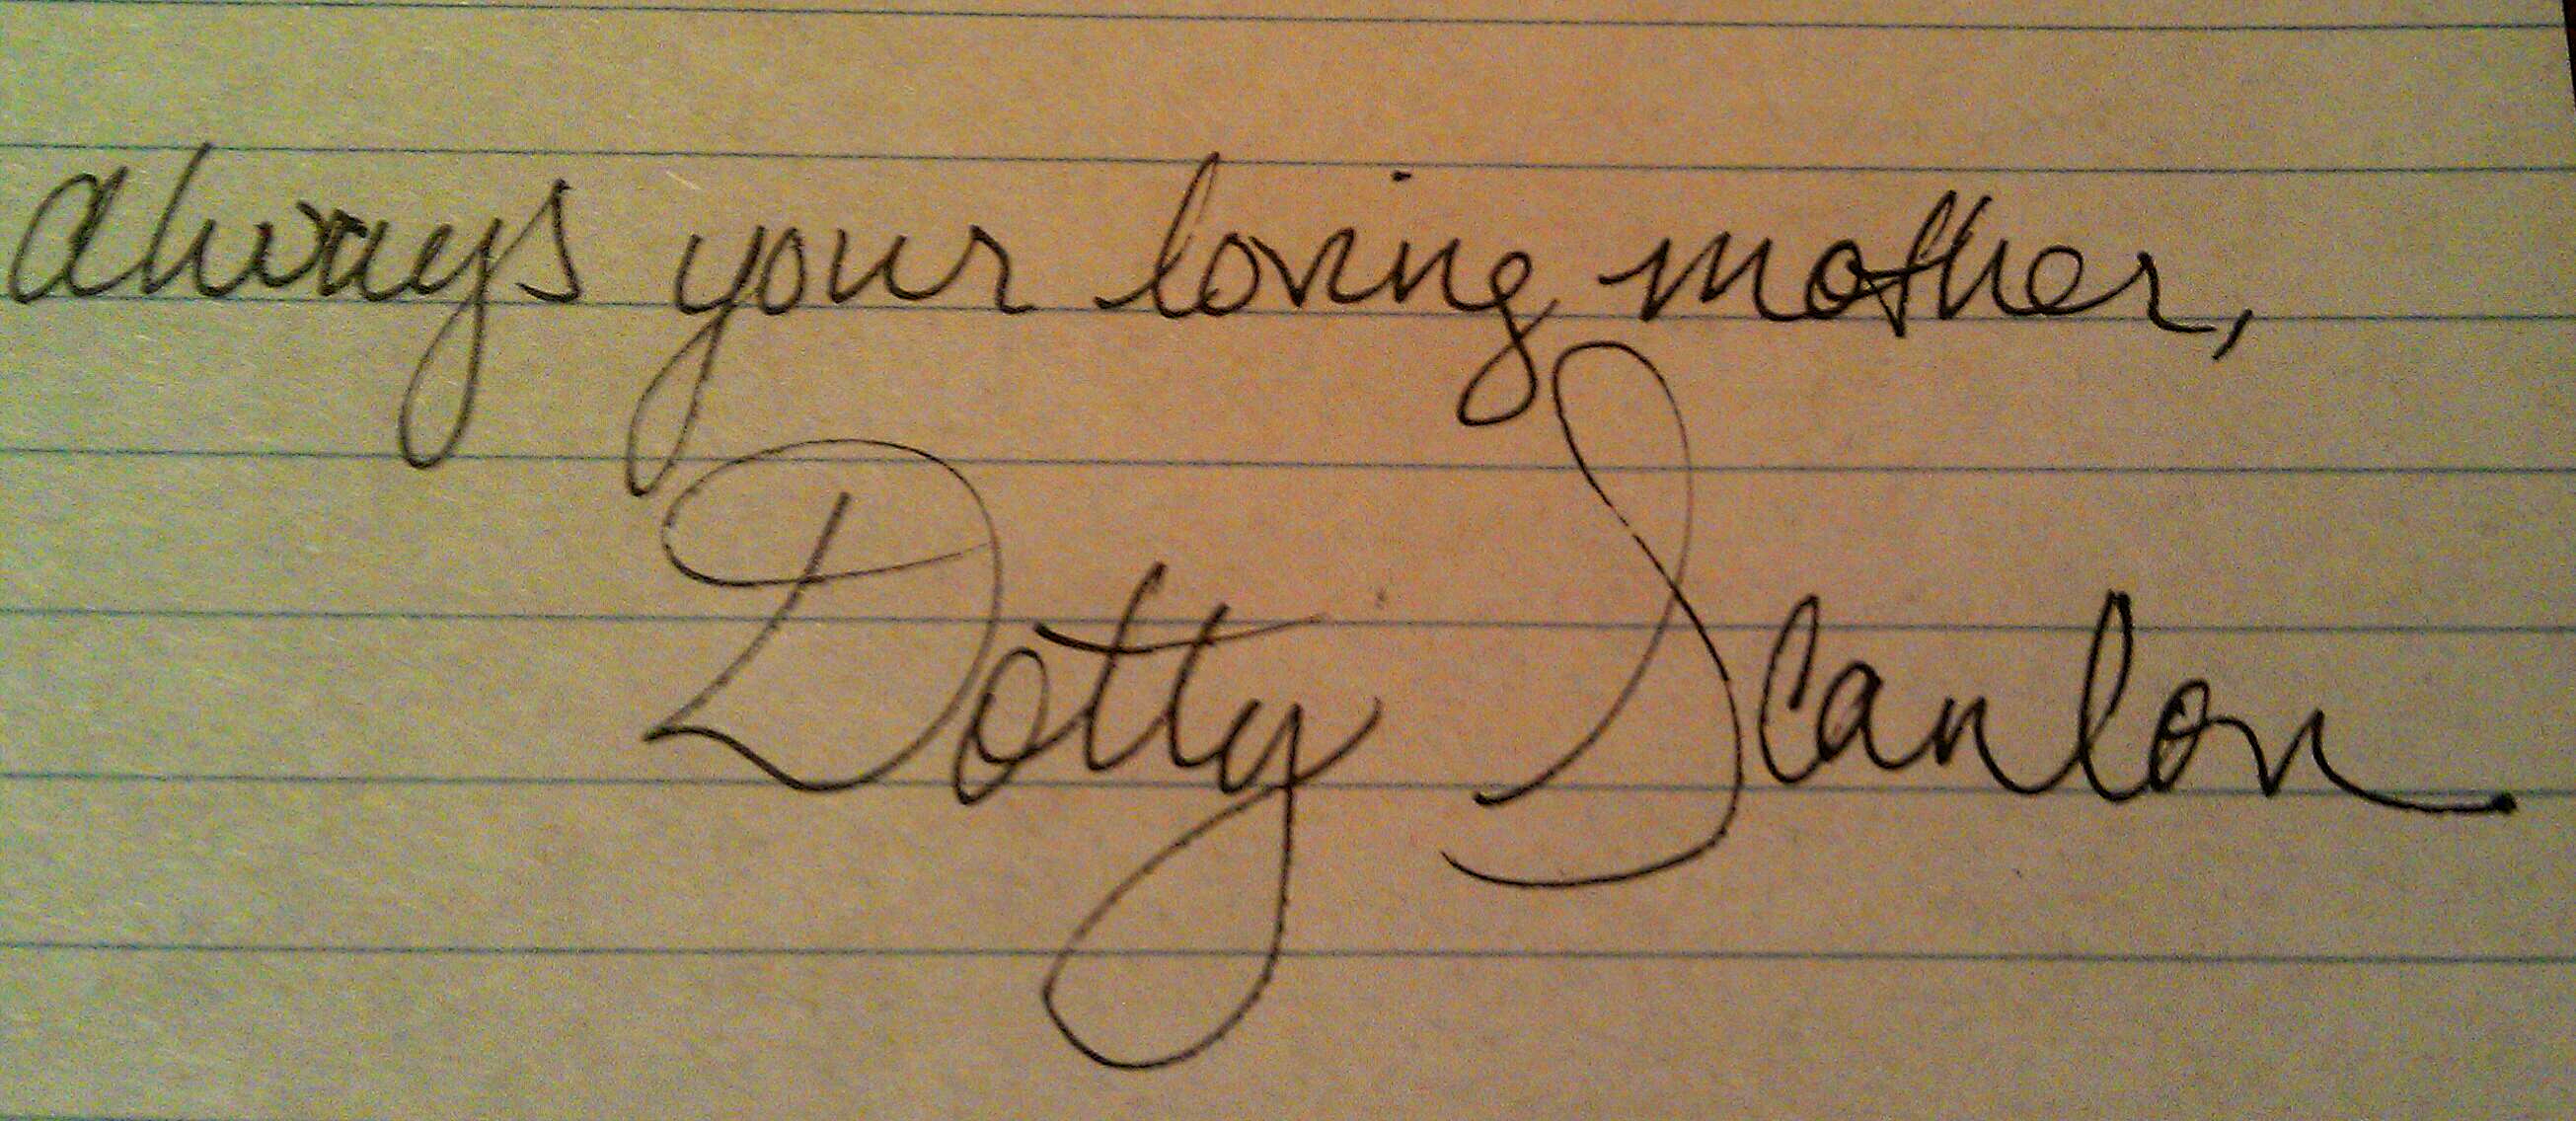 always your loving mother,
Dotty Scanlon